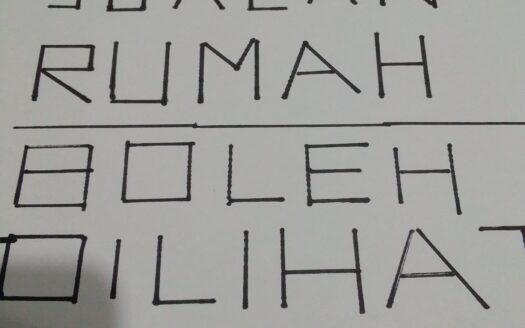 RUMAH
BOLEH
DILIHAT